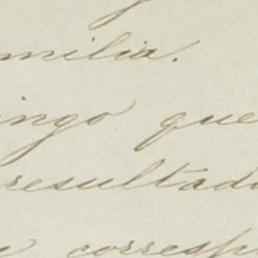 familia.
ingo que
resultado
corresp